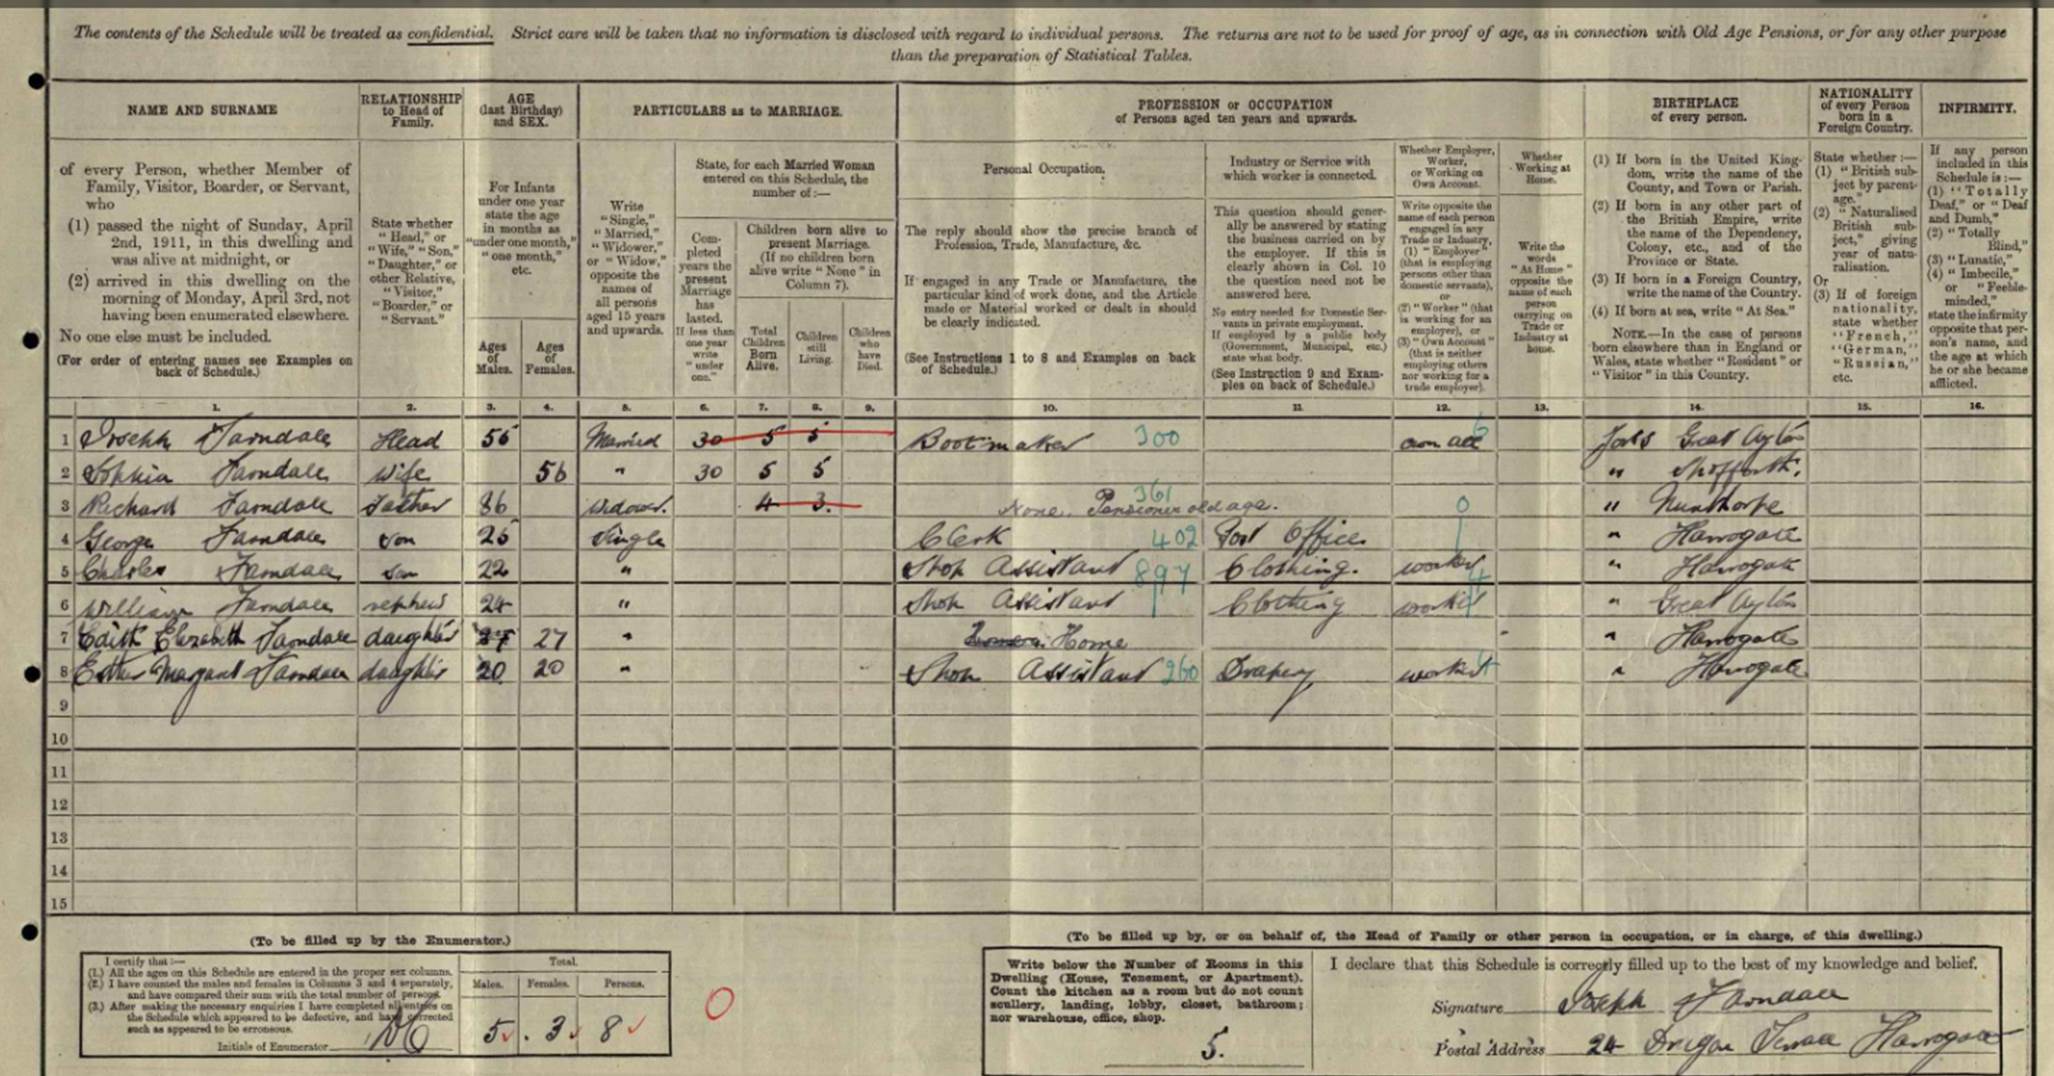 The contents of the Schedule will be treated as confidential. Strict care will be taken that no information is disclosed with regard to individual persons. The returns are not to be used for proof of age, as in connection with Old Age Pensions, or for any other purpose
than the preparation of Statistical Tables.
NAME AND SURNAME
of every Person, whether Member of
Family, Visitor, Boarder, or Servant,
who
(1) passed the night of Sunday, April
2nd, 1911, in this dwelling and
was alive at midnight, or
(2) arrived in this dwelling on the
morning of Monday, April 3rd, not
having been enumerated elsewhere.
No one else must be included.
(For order of entering names see Examples on
back of Schedule.)
RELATIONSHIP
to Head of
Family.
State whether
"Head," or
"Wife," "Son,"
"Daughter," or
other Relative,
"Visitor,"
"Boarder," or
"Servant."
AGE
(last Birthday)
and SEX.
For Infants
under one year
state the age
in months as
"under one month,"
"one month,"
etc.
Ages
of
Males.
Ages
of
Females.
PARTICULARS as to MARRIAGE.
Write
"Single,"
"Married,"
"Widower,"
or "Widow,"
opposite the
names of
all persons
aged 15 years
and upwards.
State, for each Married Woman
entered on this Schedule, the
number of:—
Com-
pleted
years the
present
Marriage
has
lasted.
If less than
one year
write
"under
one."
Children born alive to
present Marriage.
(If no children born
alive write "None" in
Column 7).
Total
Children
Born
Alive.
Children
still
Living.
Children
who
have
Died.
PROFESSION or OCCUPATION
of Persons aged ten years and upwards.
Personal Occupation.
The reply should show the precise branch of
Profession, Trade, Manufacture, &c.
If engaged in any Trade or Manufacture, the
particular kind of work done, and the Article
made or Material worked or dealt in should
be clearly indicated.
(See Instructions 1 to 8 and Examples on back
of Schedule.)
Industry or Service with
which worker is connected.
This question should gener-
ally be answered by stating
the business carried on by
the employer. If this is
clearly shown in Col. 10
the question need not be
answered here.
No entry needed for Domestic Ser-
vants in private employment.
If employed by a public body
(Government, Municipal, etc.)
state what body.
(See Instruction 9 and Exam-
ples on back of Schedule.)
Whether Employer,
Worker,
or Working on
Own Account.
Write opposite the
name of each person
engaged in any
Trade or Industry,
(1) "Employer"
(that is employing
persons other than
domestic servants),
or
(2) "Worker" (that
is working for an
employer), or
(3) "Own Account"
(that is neither
employing others
nor working for a
trade employer).
Whether
Working at
Home.
Write the
words
"At Home"
opposite the
name of each
person
carrying on
Trade or
Industry at
home.
BIRTHPLACE
of every person.
(1) If born in the United King-
dom, write the name of the
County, and Town or Parish.
(2) If born in any other part of
the British Empire, write
the name of the Dependency,
Colony, etc., and of the
Province or State.
(3) If born in a Foreign Country,
write the name of the Country.
(4) If born at sea, write "At Sea."
NOTE.—In the case of persons
born elsewhere than in England or
Wales, state whether "Resident" or
"Visitor" in this Country.
NATIONALITY
of every Person
born in a
Foreign Country.
State whether:—
(1) "British sub-
ject by parent-
age."
(2) "Naturalised
British sub-
ject," giving
year of natu-
ralisation.
Or
(3) If of foreign
nationality,
state whether
"French,"
"German,"
"Russian,"
etc.
INFIRMITY.
If any person
included in this
Schedule is:—
(1) "Totally
Deaf," or "Deaf
and Dumb,"
(2) "Totally
Blind,"
(3) "Lunatic,"
(4) "Imbecile,"
or "Feeble-
minded,"
state the infirmity
opposite that per-
son's name, and
the age at which
he or she became
afflicted.
1. 2. 3. 4. 5. 6. 7. 8. 9. 10. 11. 12. 13. 14. 15. 16.
1 Joseph Farndale Head 56 Married 30 5 5 Bootmaker 300 own acc 6 Yorks Great Ayton
2 Sophia Farndale wife 56 " 30 5 5 " Spofforth.
3 Richard Farndale Father 86 widower. 4 3. None. Pensioner old age. 361 0 " Nunthorpe
4 George Farndale son 25 Single Clerk 402 Post Office " Harrogate
5 Charles Farndale son 22 " Shop Assistant 897 Clothing. worker 4 " Harrogate
6 William Farndale nephew 24 " Shop Assistant Clothing worker " Great Ayton
7 Edith Elizabeth Farndale daughter 27 27 " Home " Harrogate
8 Esther Margaret Farndale daughter 20 20 " Shop Assistant 260 Drapery worker 4 " Harrogate
9
10
11
12
13
14
15
(To be filled up by the Enumerator.)
I certify that:—
(1.) All the ages on this Schedule are entered in the proper sex columns.
(2.) I have counted the males and females in Columns 3 and 4 separately,
and have compared their sum with the total number of persons.
(3.) After making the necessary enquiries I have completed all entries on
the Schedule which appeared to be defective, and have corrected
such as appeared to be erroneous.
Initials of Enumerator
Total.
Males. Females. Persons.
5 . 3 8
(To be filled up by, or on behalf of, the Head of Family or other person in occupation, or in charge, of this dwelling.)
Write below the Number of Rooms in this
Dwelling (House, Tenement, or Apartment).
Count the kitchen as a room but do not count
scullery, landing, lobby, closet, bathroom;
nor warehouse, office, shop.
5.
I declare that this Schedule is correctly filled up to the best of my knowledge and belief.
Signature Joseph Farndale
Postal Address 24 Dragon Terrace Harrogate